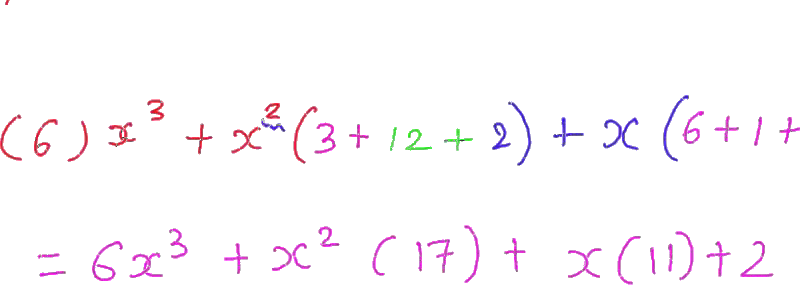 (6)x³ + x²(3 + 12 + 2) + x(6 + 1 +
= 6x³ + x²(17) + x(11) + 2